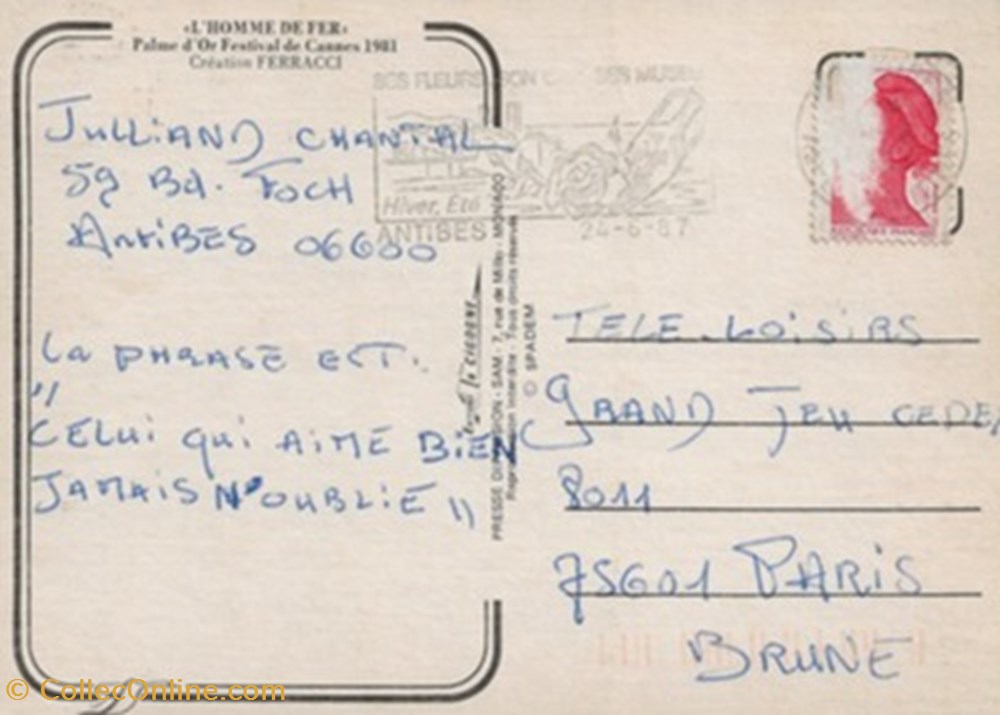 «L'HOMME DE FER»
Palme d'Or Festival de Cannes 1981
Création FERRACCI
JULLIAND CHANTAL
59 Bd. FOCH
ANTIBES 06600
La PHRASE EST.
"
CELUI QUI AIME BIEN
JAMAIS N'OUBLIE "
SES FLEURS SON SES MUSEES
Hiver, Eté
ANTIBES
24-6-87
PRESSE - SAM - 7, rue de Millo - MONACO
interdite - Tous droits réservés
© SPADEM
TELE-LOISIRS
GRAND JEU CEDEX
8011
75601 PARIS
BRUNE
© CollecOnline.com